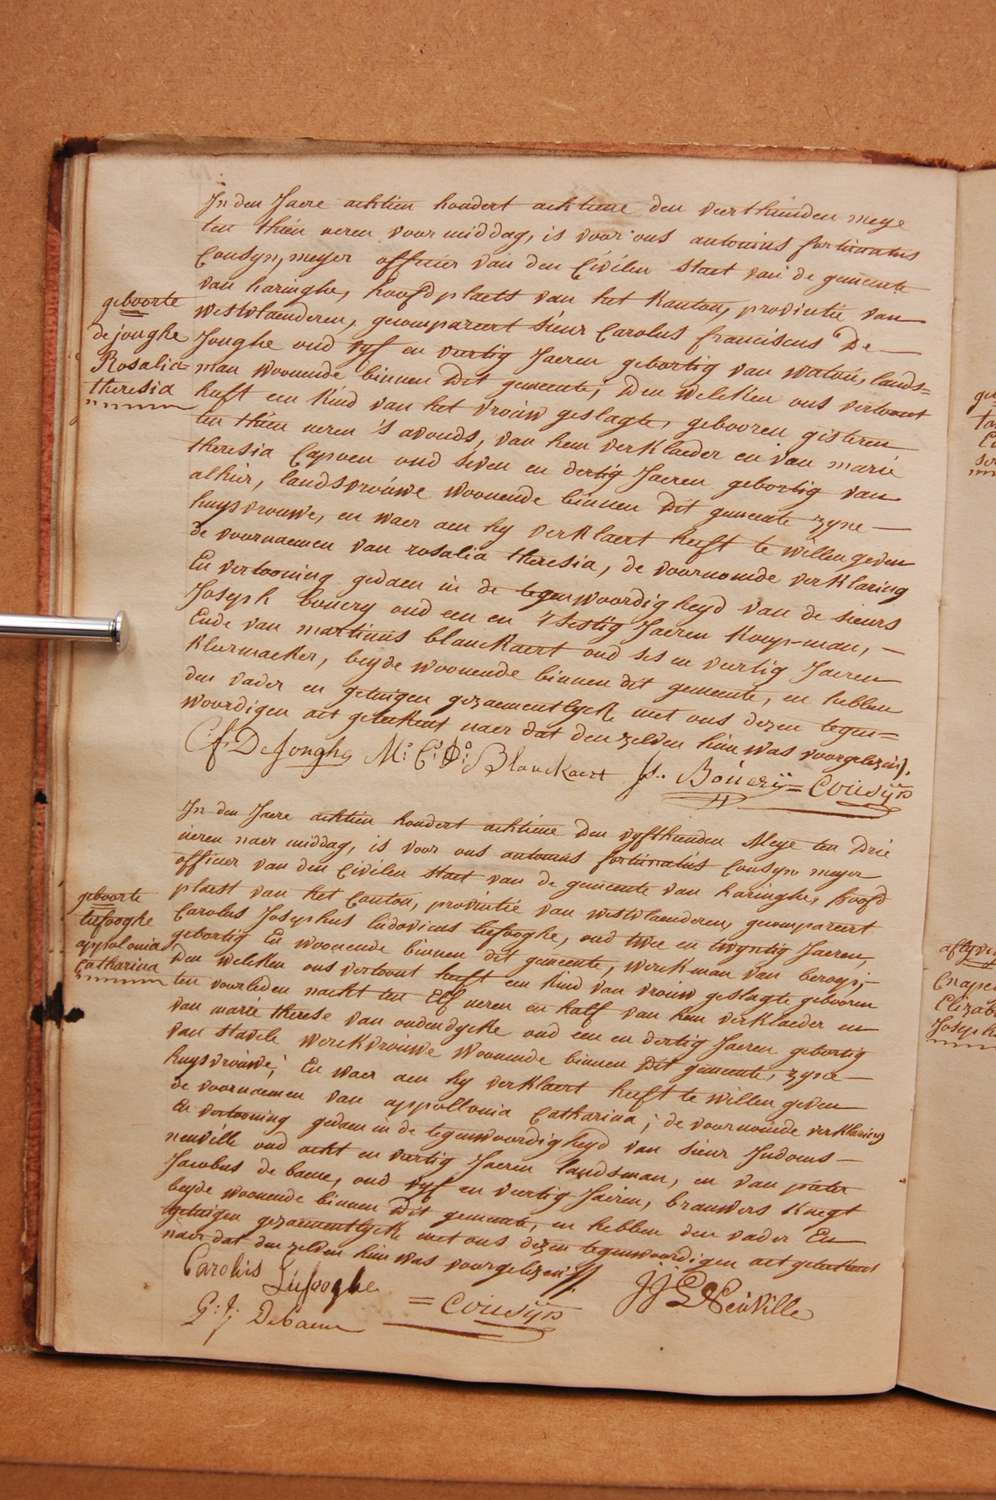 In den Jaere achtien hondert achtiene den veerthienden meye
ten thien ueren voor middag, is voor ons antonius fortunatus
Cousyn, meyer officier van den Civilen staet van de gemeente
van haringhe, hoofdplaets van het Kanton, provintie van
westvlaenderen, gecompareert sieur Carolus franciscus De
geboorte
de jonghe
Rosalia
theresia
Jonghe oud vyf en veertig Jaeren gebortig van watou, lands=
man woonende binnen dit gemeente, Den welcken ons vertoont
heeft een kind van het vrouw geslagte, gebooren gisteren
ten thien ueren 's avonds, van hem verklaeder en van marie
theresia Capoen oud seven en dertig Jaeren gebortig van
alhier, landsvrouwe woonende binnen dit gemeente zyne
huysvrouwe, en waer aen hy verklaert heeft te willen geven
de voornaemen van rosalia theresia, de voornoemde verklaring
En vertooning gedaen in de tegenwoordigheyd van de sieurs
Joseph bouery oud een en tsestig Jaeren koop-man,
Ende van martinus blanckaert oud ses en veertig Jaeren
kleermaeker, beyde woonende binnen dit gemeente, en hebben
den vader en getuigen gezaementlyck met ons dezen tegen=
woordigen act geteekent naer dat den zelven hun was voorgelezen.
C. f. De Jonghe M: C: D: Blanckaert Js. Bouerij = Cousijn
In den Jaere achtien hondert achtiene den vyfthienden Meye ten drie
ueren naer middag, is voor ons antonius fortunatus Cousyn meyer
officier van den Civilen staet van de gemeente van haringhe, hoofd
plaest van het Canton, provintie van westvlaenderen, gecompareert
geboorte
liefooghe
appolonia
Catharina
Carolus Josephus ludovicus liefooghe, oud twee en twyntig Jaeren,
gebortig En woonende binnen dit gemeente, werckman van beroep,
Den welcken ons vertoont heeft een kind van vrouw geslagte gebooren
ten voorleden nacht ten Elf ueren en half van hem verklaeder en
van marie therese van oudendycke oud een en dertig Jaeren gebortig
van stavele werckvrouwe woonende binnen dit gemeente, zyne
huysvrouwe; En waer aen hy verklaert heeft te willen geven
de voornaemen van appollonia Catharina; de voornoemde verklaring
En vertooning gedaen in de tegenwoordigheyd van sieur Judocus
neuville oud acht en veertig Jaeren landsman, en van pieter
Jacobus de baene, oud vyf en veertig Jaeren, brauwers knegt
beyde woonende binnen dit gemeente, en hebben den vader En
getuigen gezaementlyck met ons dezen tegenwoordigen act geteekent
naer dat den zelven hun was voorgelezen
Carolus Liefooghe JJ DNeuville
P: j: Debaene = Cousijn